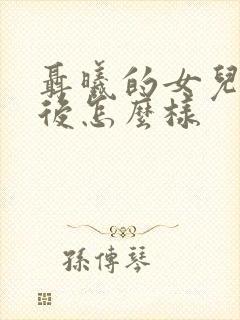 聶曦的女兒
後怎麼樣
孫傳琴